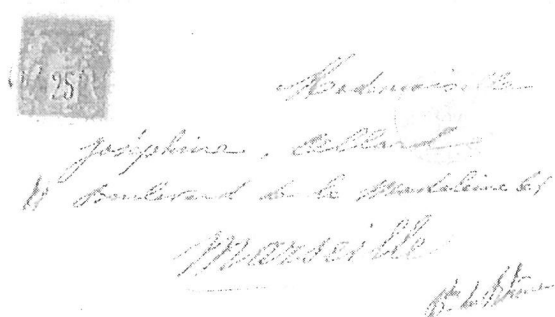 25
Mademoiselle
Joséphine Allard
Boulevard de la Madeleine
Marseille